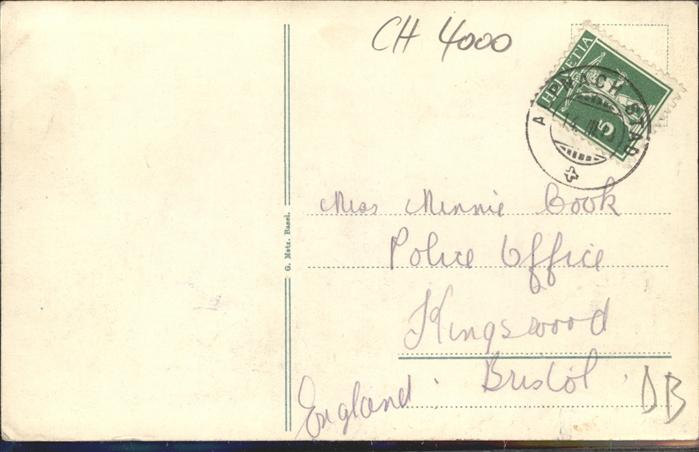 CH 4000
HELVETIA
5
ALPNACH STAD
G. Metz, Basel.
Miss Minnie Cook
Police Office
Kingswood
Bristol.
England.
DB